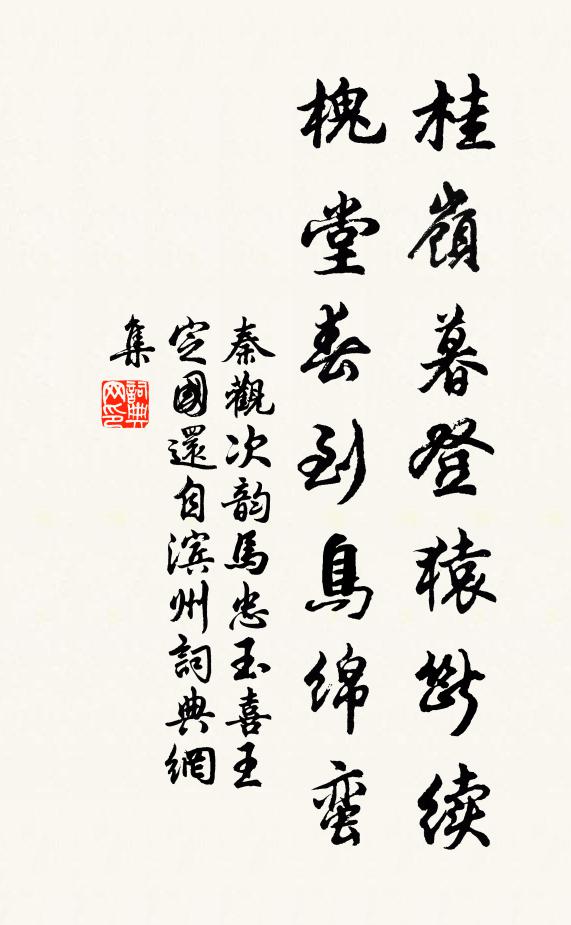 桂嶺暮登猿斷續
槐堂春到鳥綿蛮
秦觀次韵馬忠玉喜王
定國還自滨州詞典網
集
詞典網印